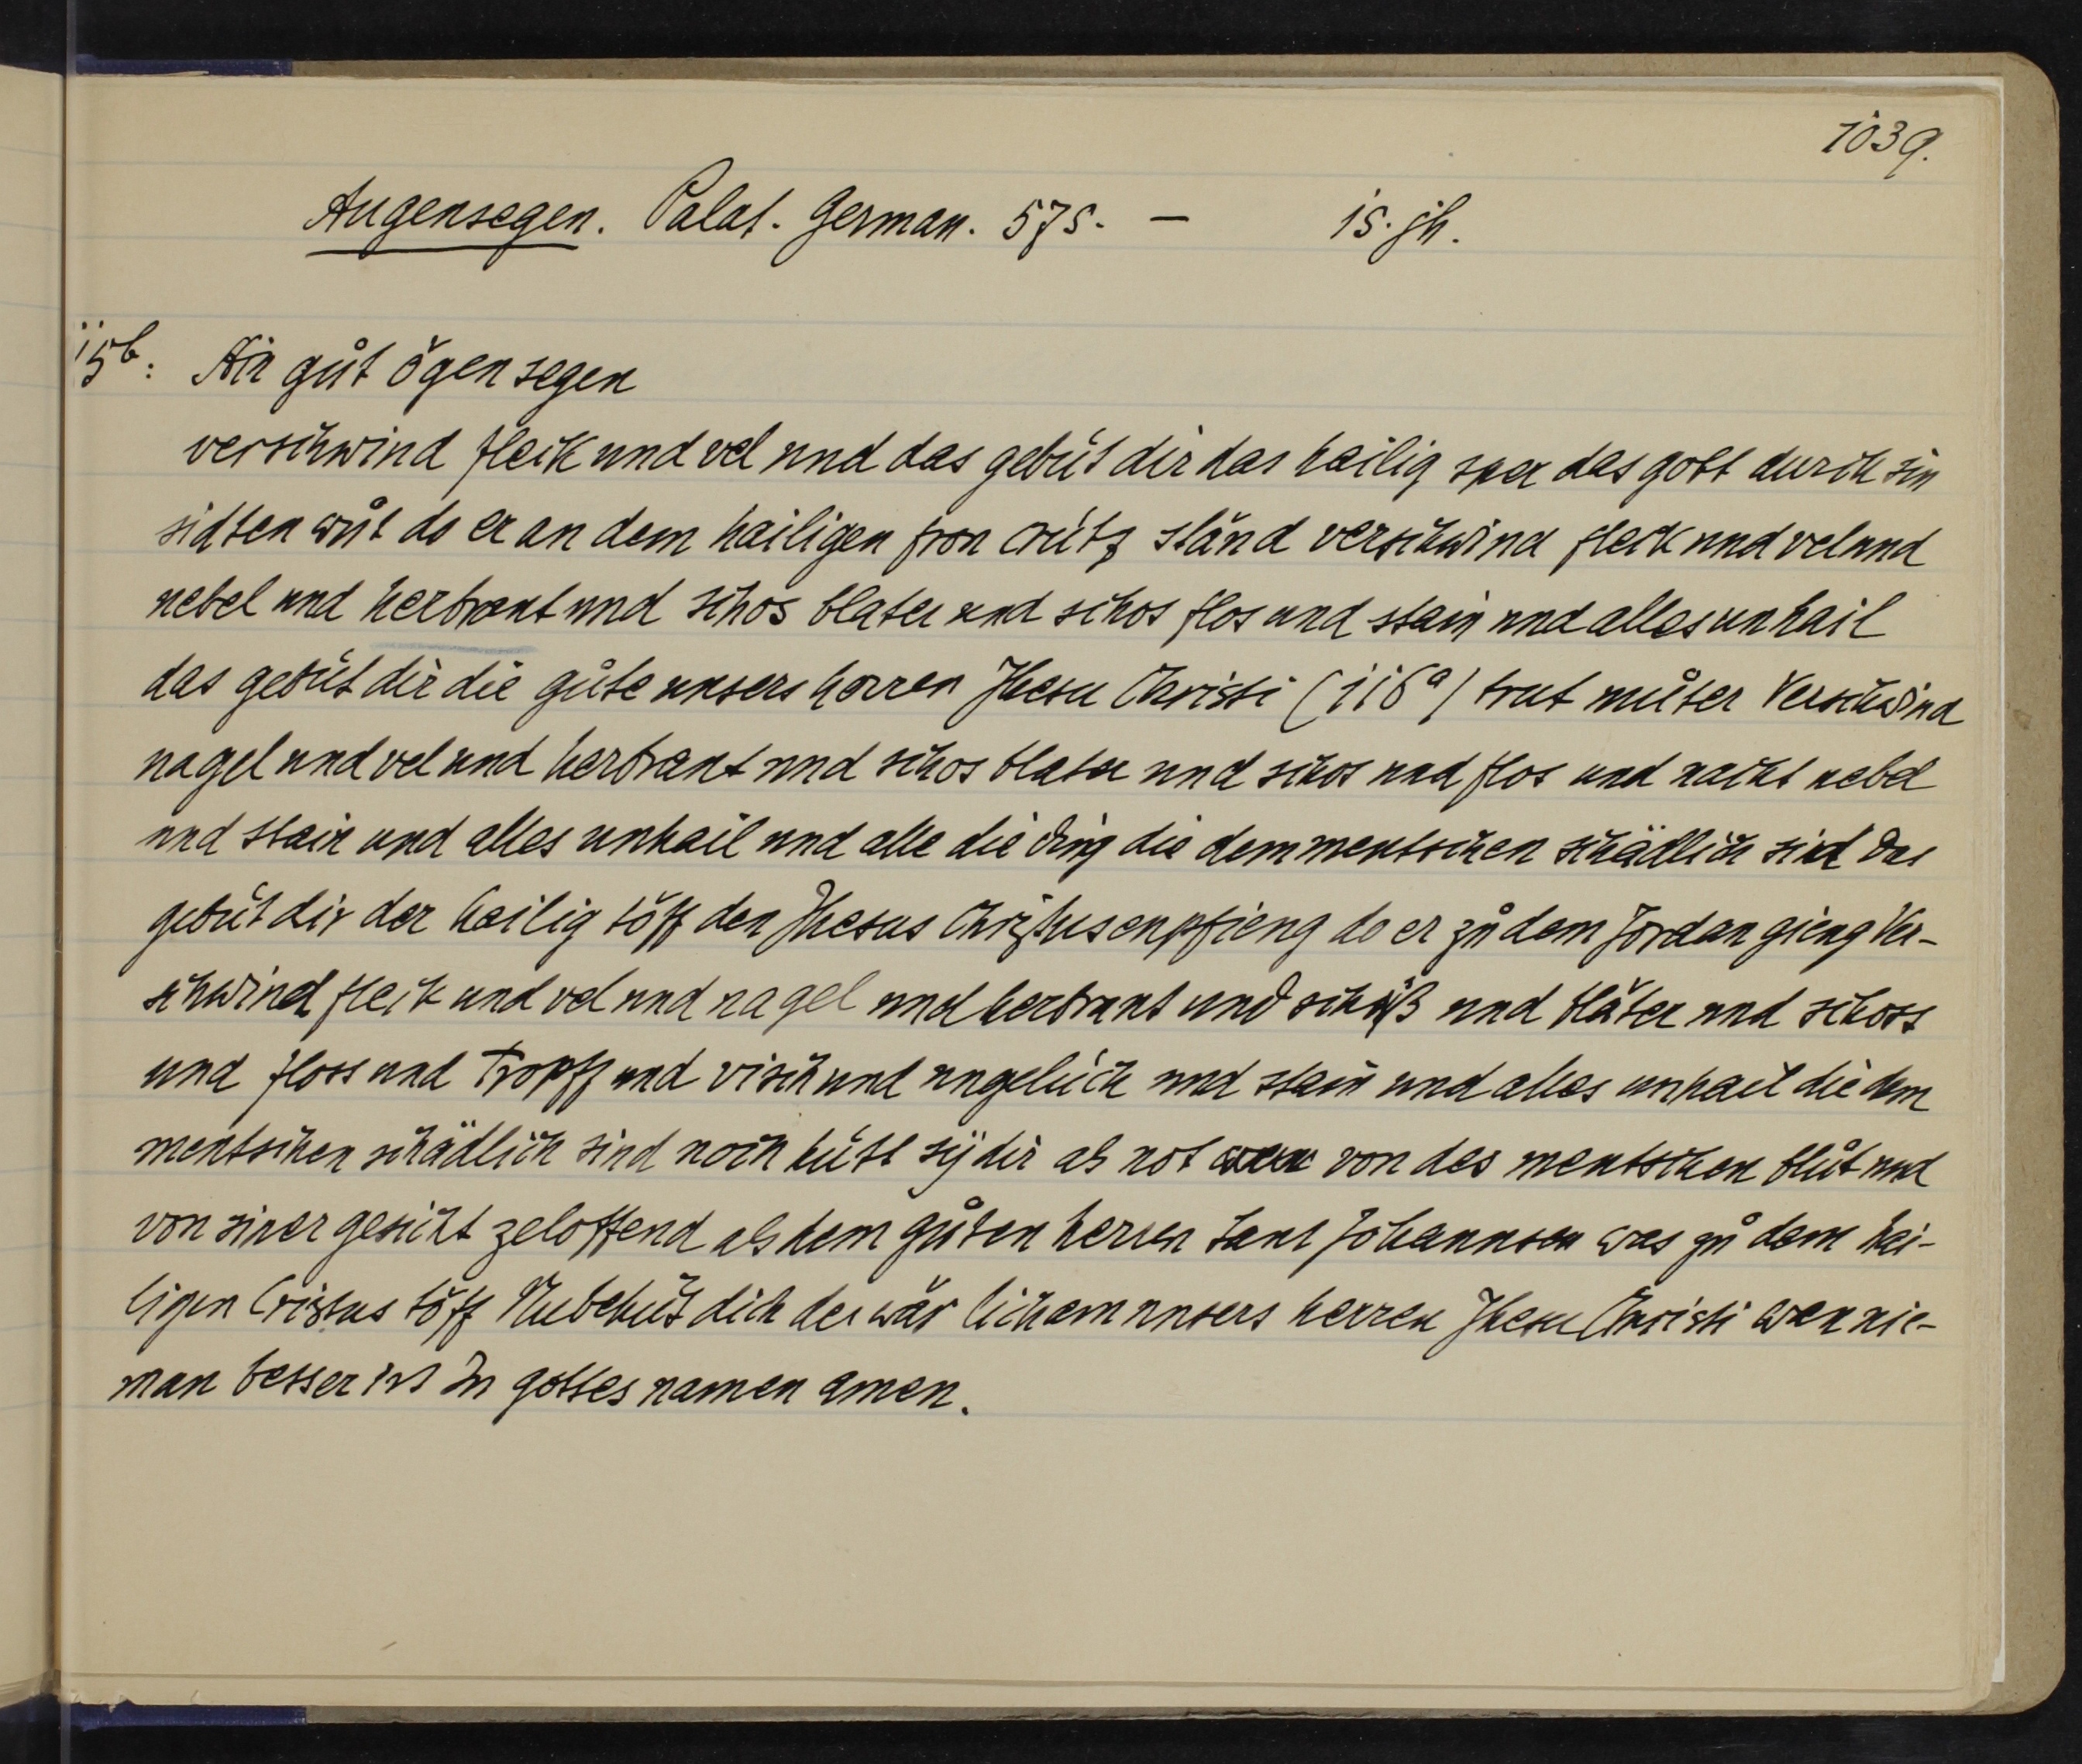 1039.
Augensegen. Palat. German. 575. — 15. jh.
115b: Ain gůt ögen segen
verschwind fleck und vel und das gebüt dir das heilig sper das gott durch sin
sidten wůt do er an dem hailigen fron crütz ständ verschwind fleck und vel und
nebel und herbrant und schos blater und schos flos und stain und alles unhail
das gebüt dir die gůte unsers herren Jhesu Christi (116a) trut můter Verschwind
nagel und vel und herbrant und schos blater und schos und flos und nacht nebel
und stain und alles unhail und alle die ding die dem mentschen schädlich sind das
gebüt dir der heilig töff den Jhesus Christus enpfieng do er zů dem Jordan gieng Ver-
schwind fleck und vel und nagel und herbrant und schuß und blăter und schoss
und floss und Tropff und visch und ungelück und stain und alles unhail die dem
mentschen schädlich sind noch hütt sÿ dir als not von des mentschen blůt und
von siner gesicht zeloffend als dem gůten herren sant Johannsen was zů dem hai-
ligen Cristus töff Nu behüt dich der wär licham unsers herren Jhesu Christi wan nie-
man besser ist In gottes namen amen.